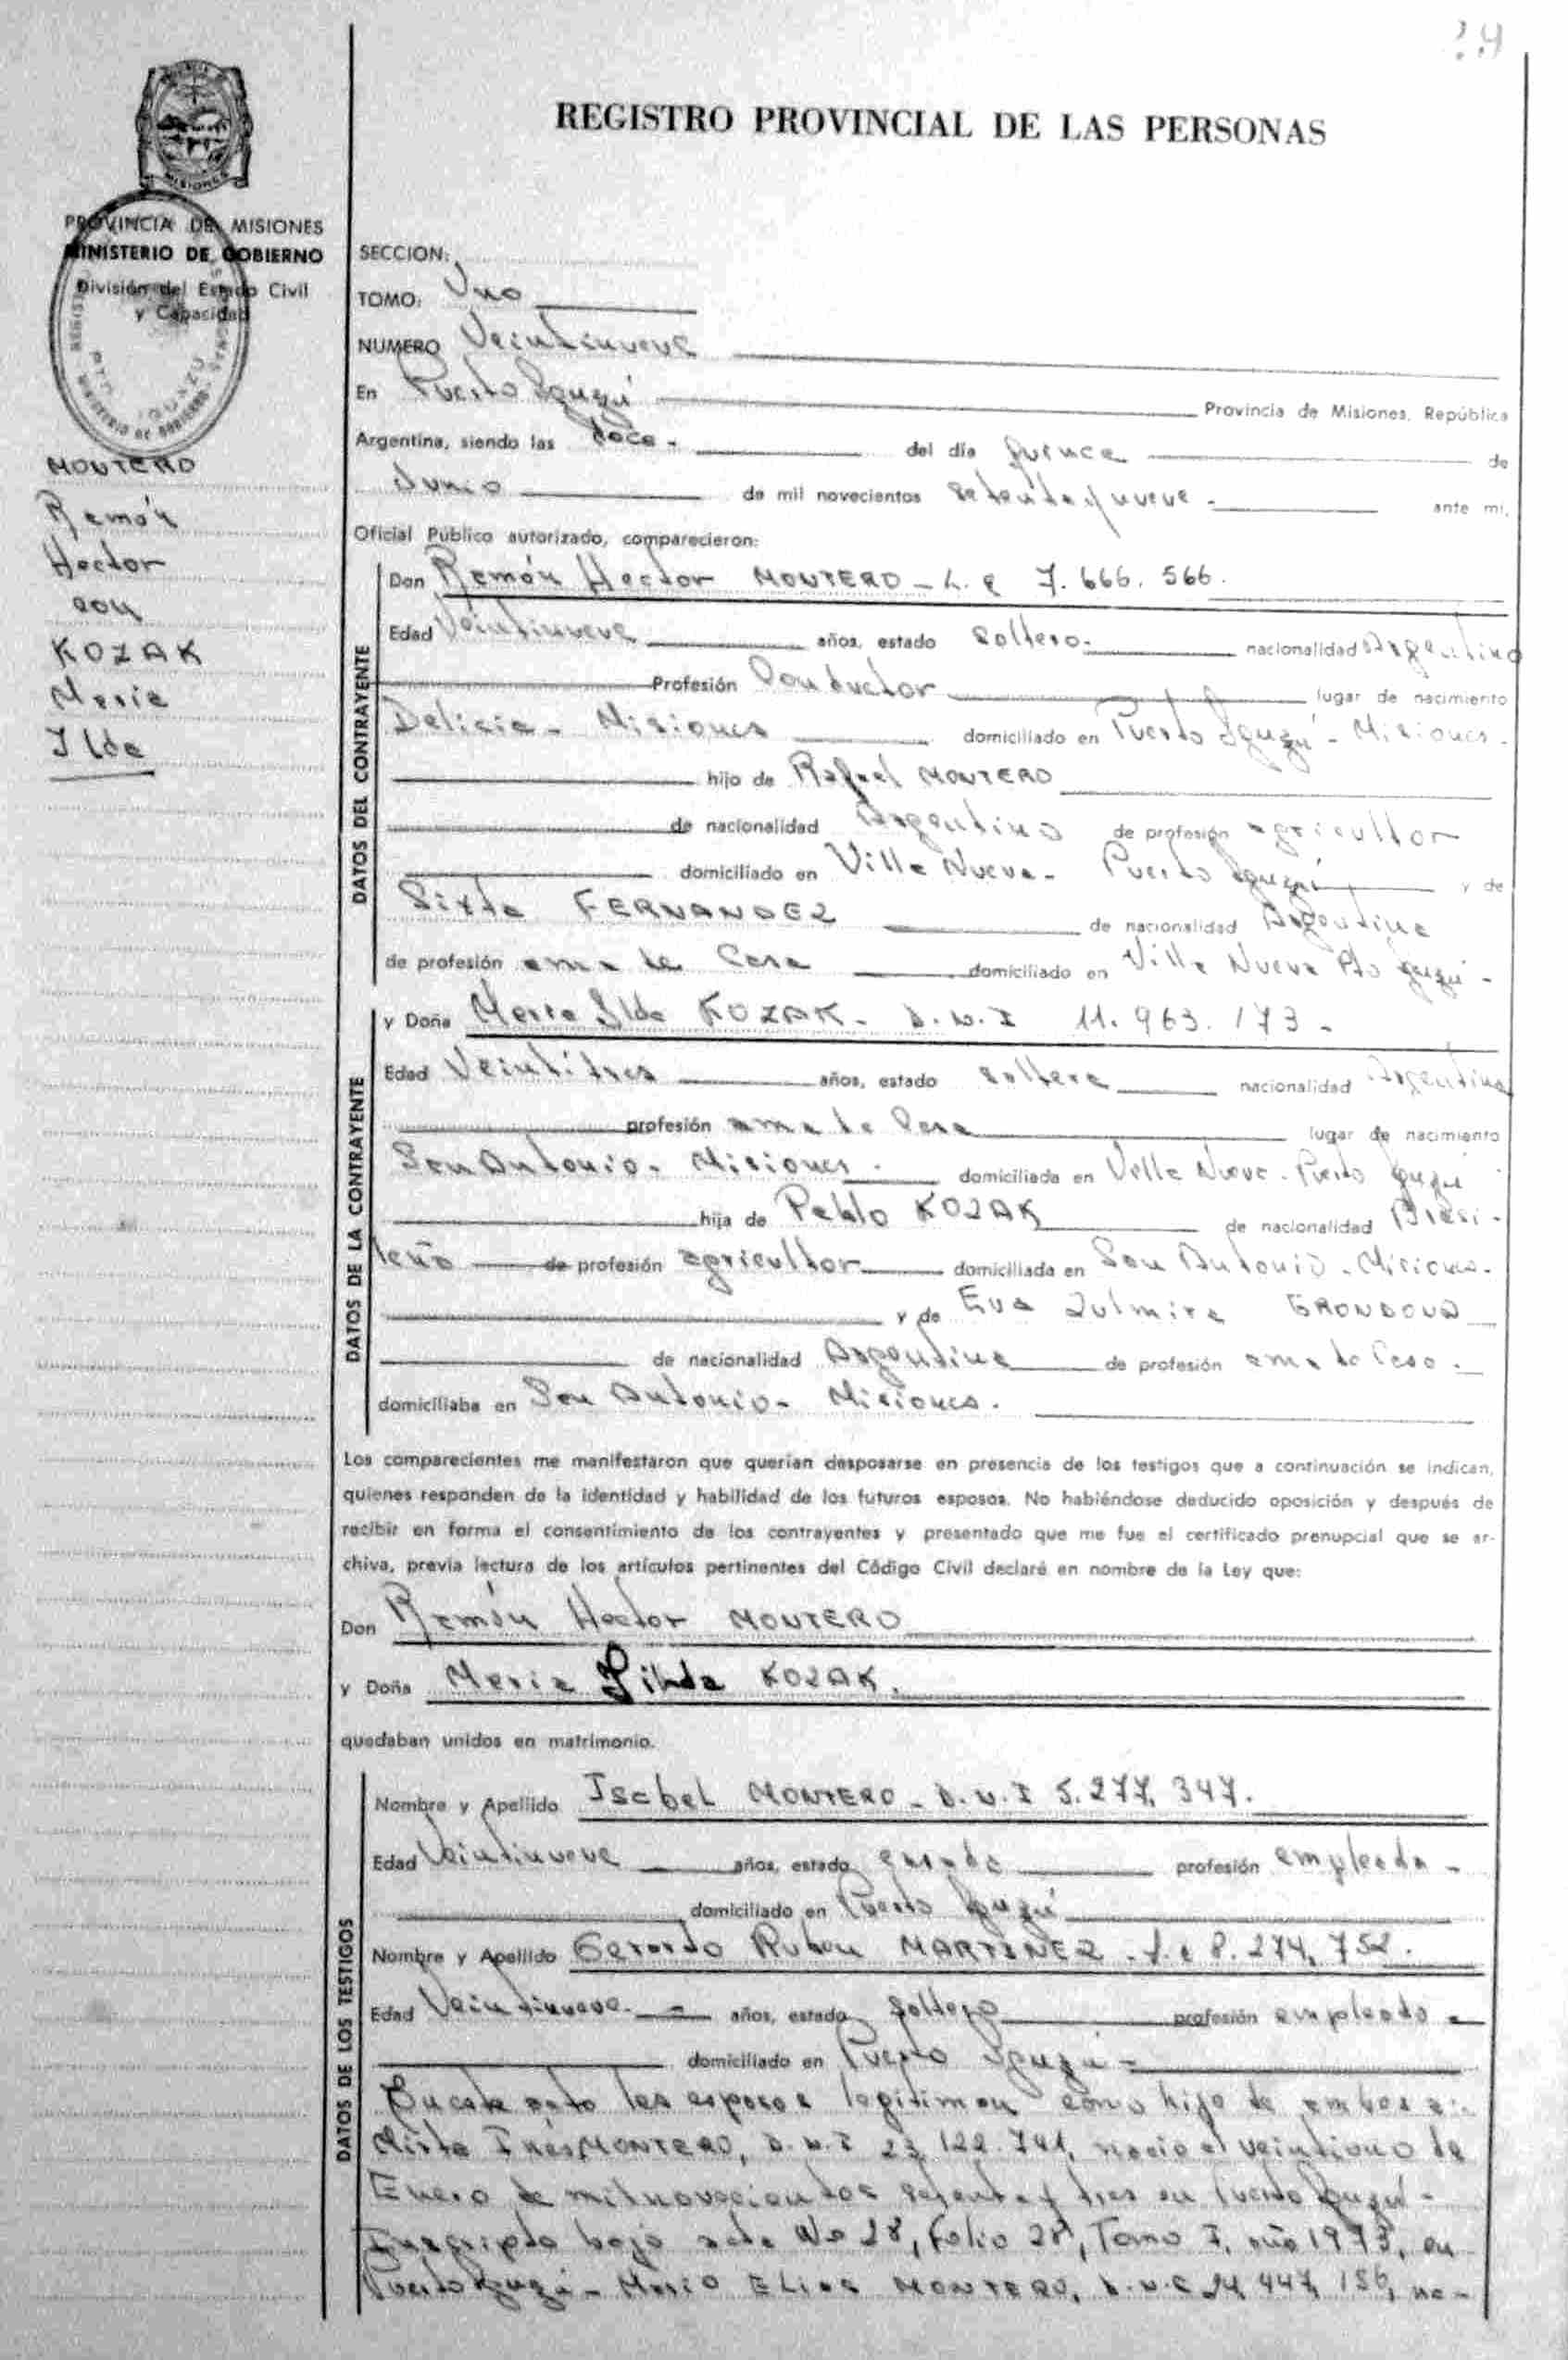 REGISTRO PROVINCIAL DE LAS PERSONAS
MISIONES
PROVINCIA DE MISIONES
MINISTERIO DE GOBIERNO
División del Estado Civil
y Capacidad
MONTERO
Ramón
Hector
con
KOZAK
Maria
Ilda
SECCION:
TOMO: Uno
NUMERO Veintinueve
En Puerto Iguazú Provincia de Misiones, República
Argentina, siendo las doce - del día quince de
Junio de mil novecientos setenta y nueve - ante mi,
Oficial Público autorizado, comparecieron:
DATOS DEL CONTRAYENTE
Don Ramón Hector MONTERO - L. E 7.666.566.
Edad Veintinueve años, estado soltero. nacionalidad Argentino
Profesión Conductor lugar de nacimiento
Delicia - Misiones domiciliado en Puerto Iguazú - Misiones.
hijo de Rafael MONTERO
de nacionalidad Argentino de profesión agricultor
domiciliado en Villa Nueva - Puerto Iguazú y de
Sixta FERNANDEZ de nacionalidad Argentina
de profesión ama de Casa domiciliado en Villa Nueva Pto Iguazú -
DATOS DE LA CONTRAYENTE
y Doña Maria Ilda KOZAK - D.N.I 11.963.173 -
Edad Veintitres años, estado soltera nacionalidad Argentina
profesión ama de Casa lugar de nacimiento
San Antonio - Misiones. domiciliada en Villa Nueva - Puerto Iguazú
hija de Pablo KOZAK de nacionalidad Brasi-
leño de profesión agricultor domiciliada en San Antonio - Misiones.
y de Eva Zulmira GRONDONA
de nacionalidad Argentina de profesión ama de Casa.
domiciliaba en San Antonio - Misiones.
Los comparecientes me manifestaron que querían desposarse en presencia de los testigos que a continuación se indican,
quienes responden de la identidad y habilidad de los futuros esposos. No habiéndose deducido oposición y después de
recibir en forma el consentimiento de los contrayentes y presentado que me fue el certificado prenupcial que se ar-
chiva, previa lectura de los artículos pertinentes del Código Civil declaré en nombre de la Ley que:
Don Ramón Hector MONTERO
y Doña Maria Ilda KOZAK.
quedaban unidos en matrimonio.
DATOS DE LOS TESTIGOS
Nombre y Apellido Isabel MONTERO - D.N.I 5.277.347.
Edad Veintinueve años, estado casada profesión empleada -
domiciliado en Puerto Iguazú
Nombre y Apellido Gerardo Ruben MARTINEZ - L.E 8.274.752.
Edad Veintinueve - años, estado soltero profesión empleado -
domiciliado en Puerto Iguazú -
En este acto los esposos legitiman como hijo de ambos a:
Mirta Inés MONTERO, D.N.I 23.122.741, nacio el veintiuno de
Enero de mil novecientos setenta y tres en Puerto Iguazú -
Inscripta bajo acta No 28, folio 28, Tomo I, año 1973, en
Puerto Iguazú - Mario Elias MONTERO, D.N.I 24.447.156, na-